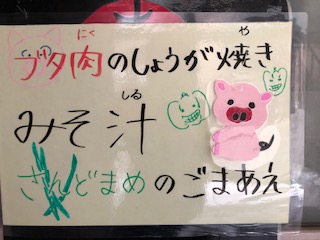 ブタ肉のしょうが焼き
みそ汁
さんどまめのごまあえ